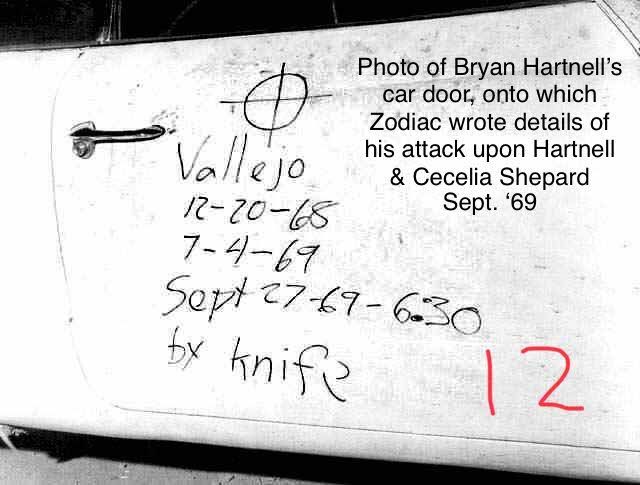 Photo of Bryan Hartnell's
car door, onto which
Zodiac wrote details of
his attack upon Hartnell
& Cecelia Shepard
Sept. ‘69
Vallejo
12-20-68
7-4-69
Sept 27-69-6:30
by knife
12